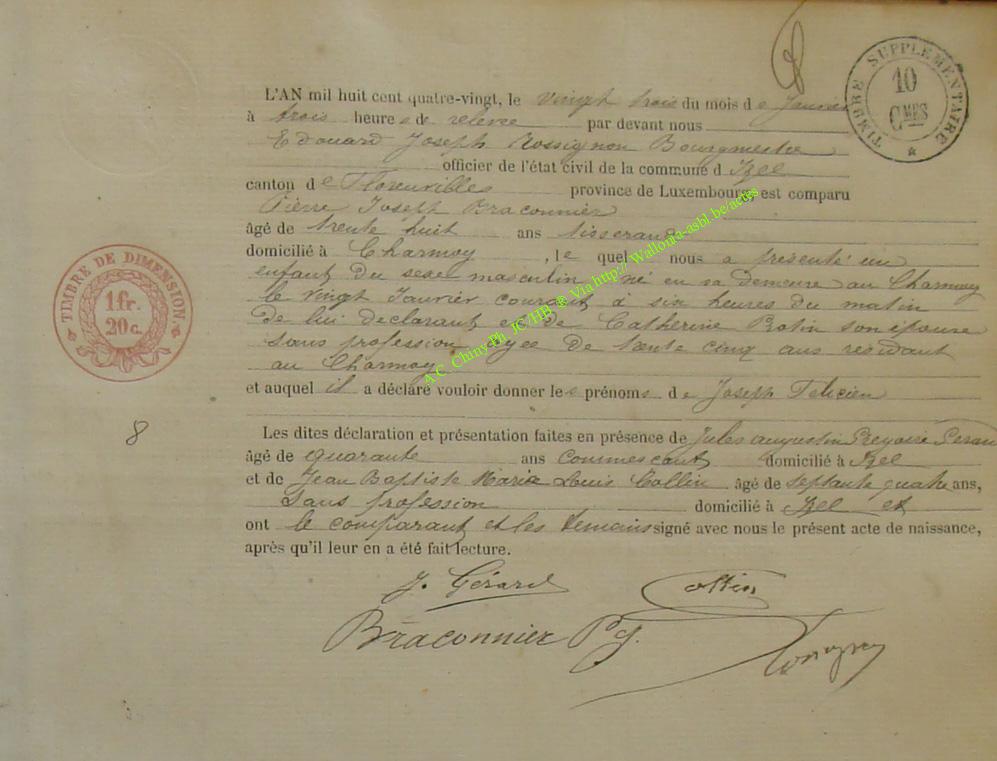 TIMBRE SUPPLEMENTAIRE
10
CMES
L'AN mil huit cent quatre-vingt, le vingt trois du mois de Janvier
à trois heures de relevée par devant nous
Edouard Joseph Rossignon Bourgmestre
officier de l'état civil de la commune d Izel
canton de Florenvilles province de Luxembourg est comparu
Pierre Joseph Braconnier
âgé de trente huit ans tisserand
domicilié à Charmoy , le quel nous a présenté un
enfant du sexe masculin né en sa demeure au Charmoy
le vingt Janvier courant à six heures du matin
de lui déclarant et de Catherine Rotin son épouse
sans profession agée de trente cinq ans residant
au Charmoy
et auquel il a déclaré vouloir donner les prénoms de Joseph Felicien
TIMBRE DE DIMENSION
1 fr.
20 c.
8
Les dites déclaration et présentation faites en présence de Jules Augustin Gregoire Gerard
âgé de quarante ans commescant domicilié à Izel
et de Jean Baptiste Marie Louis Collin âgé de septante quatre ans,
sans profession domicilié à Izel et
ont le comparant et les temoins signé avec nous le présent acte de naissance,
après qu'il leur en a été fait lecture.
J. Gérard Collin
Braconnier P J.
A.C. Chiny-Ph. JC/HB ® Via http:// Wallonia-asbl.be/actes